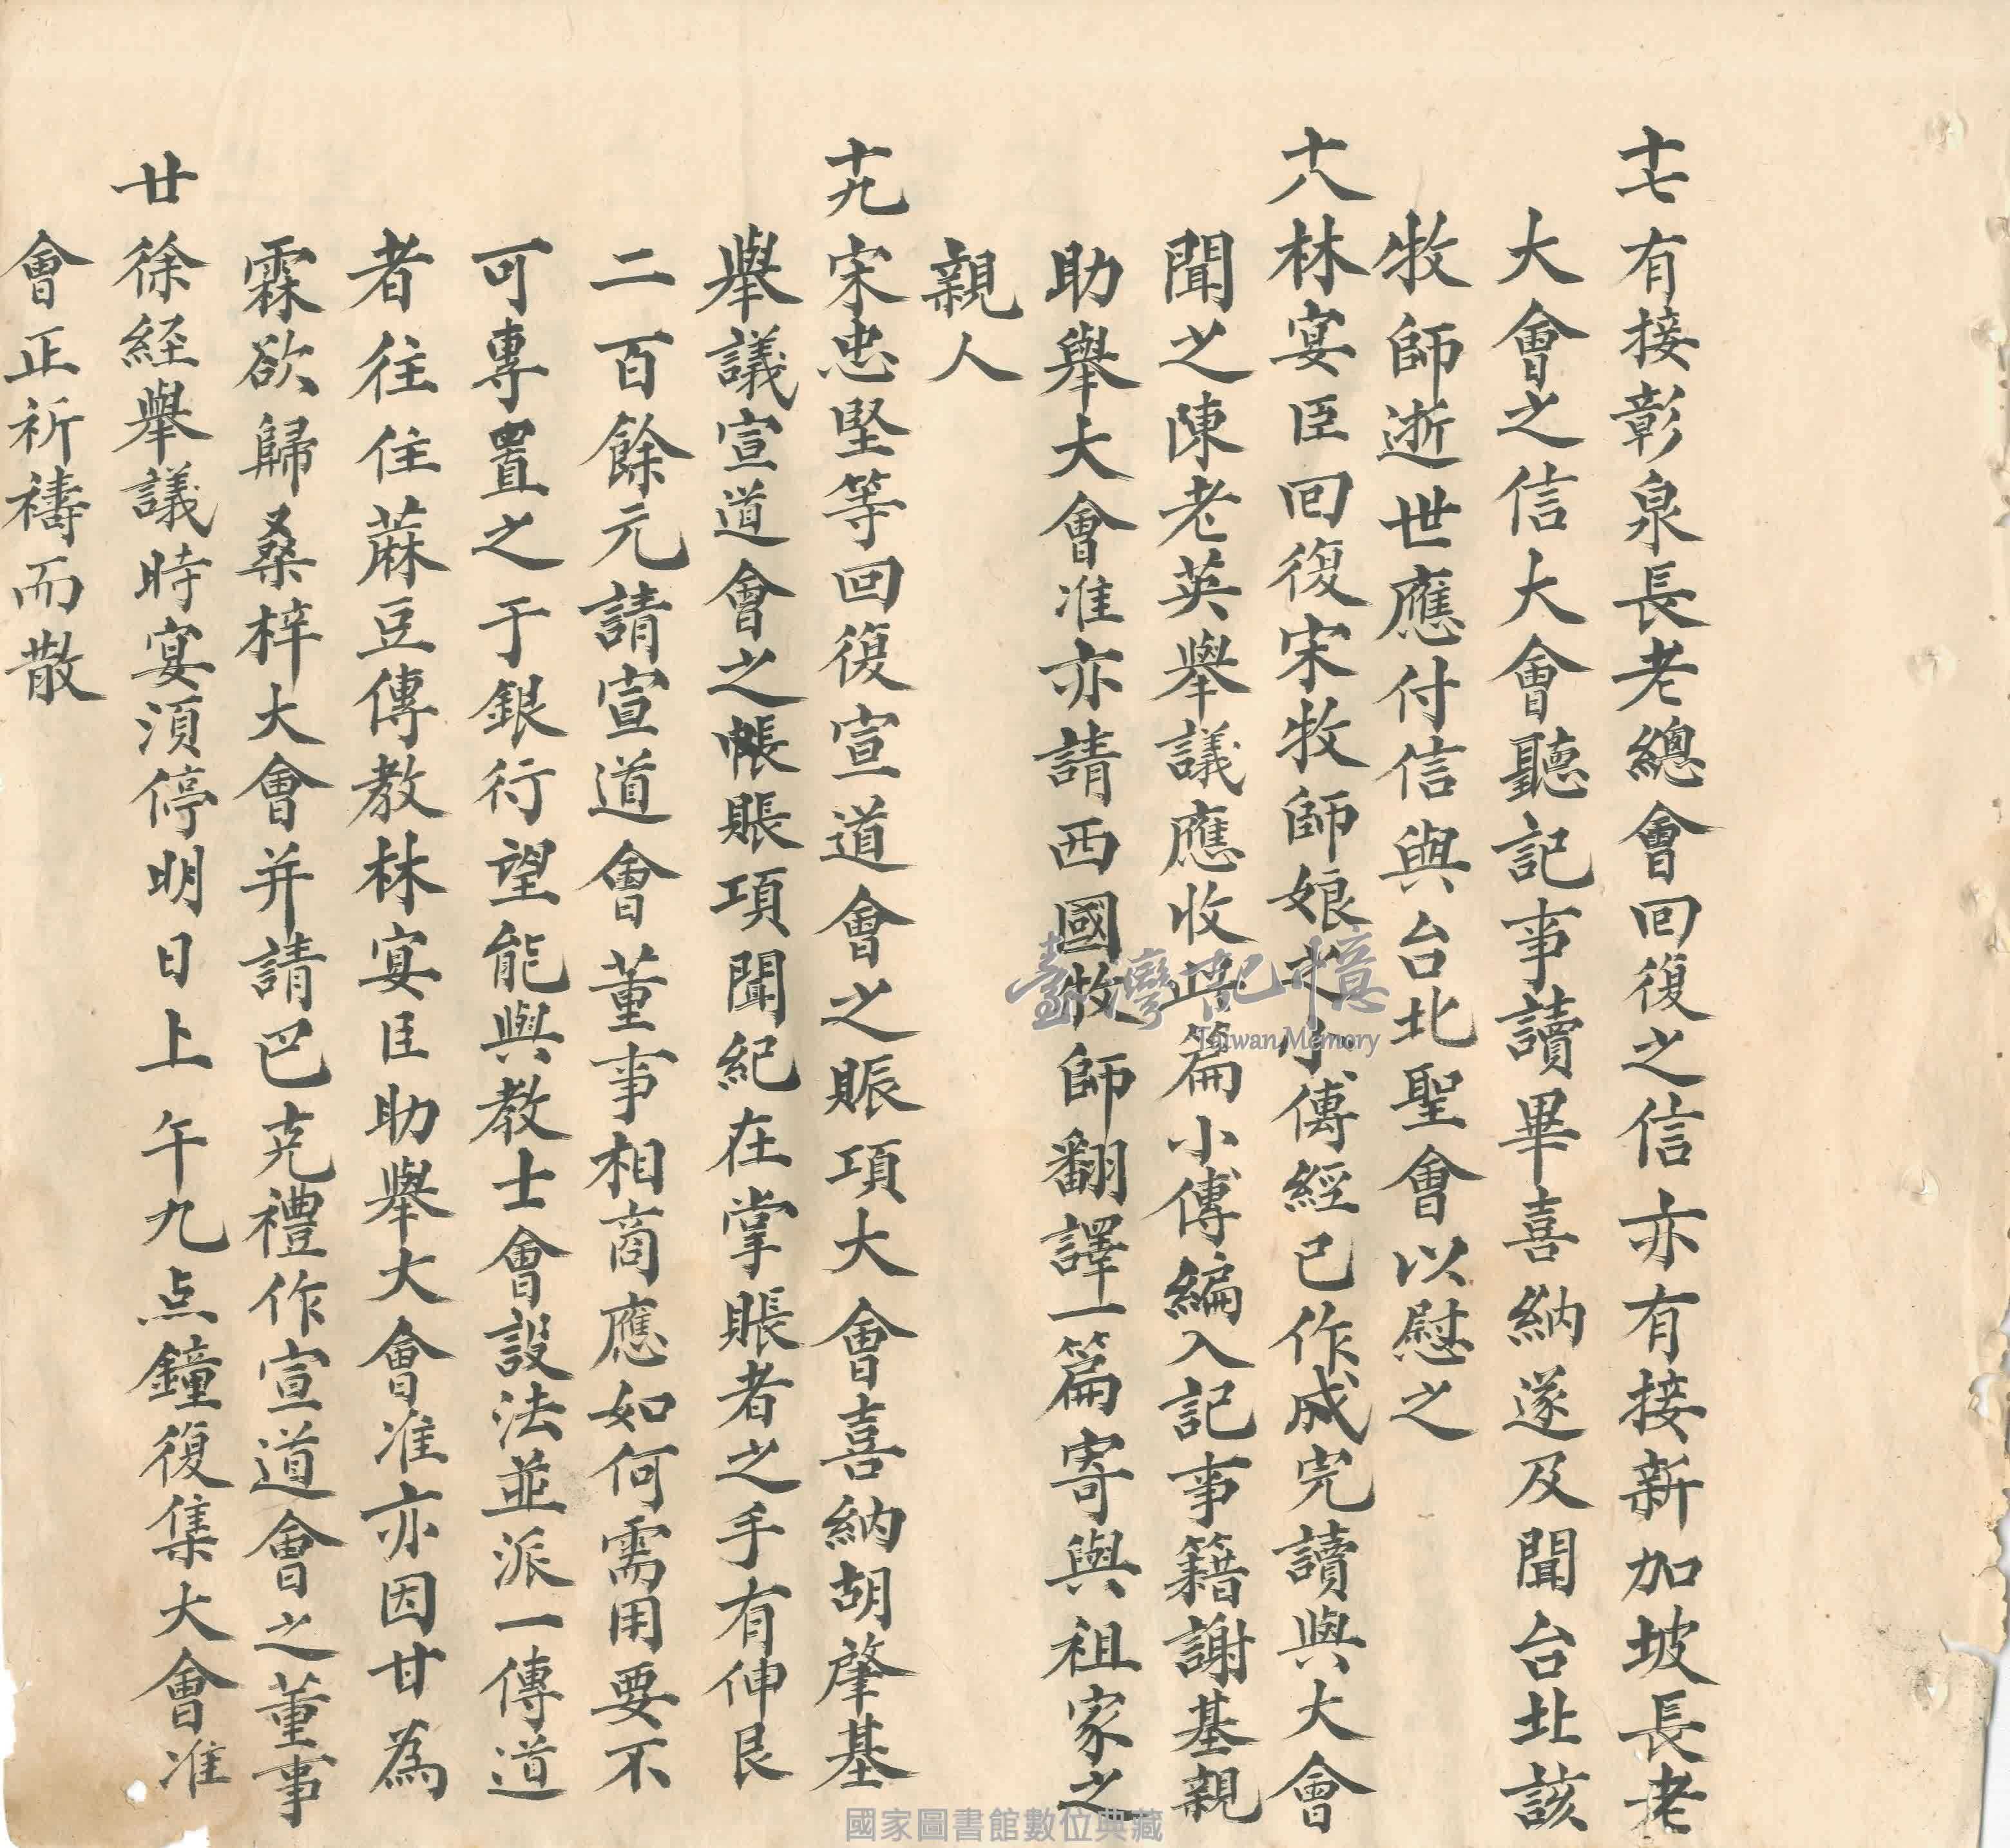 十七有接彰泉長老總會回復之信亦有接新加坡長老
大會之信大會聽記事讀畢喜納遂及聞台北該
牧師逝世應付信與台北聖會以慰之
十八林宴臣回復宋牧師娘之小傳經已作成完讀與大會
聞之陳老英舉議應收此篇小傳編入記事籍謝基親
助舉大會准亦請西國牧師翻譯一篇寄與祖家之
親人
十九宋忠堅等回復宣道會之賬項大會喜納胡肇基
舉議宣道會之帳賬項聞紀在掌賬者之手有伸艮
二百餘元請宣道會董事相商應如何需用要不
可專置之于銀行望能與教士會設法並派一傳道
者往住蔴豆傳教林宴臣助舉大會准亦因甘為
霖欲歸桑梓大會并請巴克禮作宣道會之董事
廿徐経舉議時宴須停明日上午九点鐘復集大會准
會正祈禱而散
臺灣記憶
Taiwan Memory
國家圖書館數位典藏